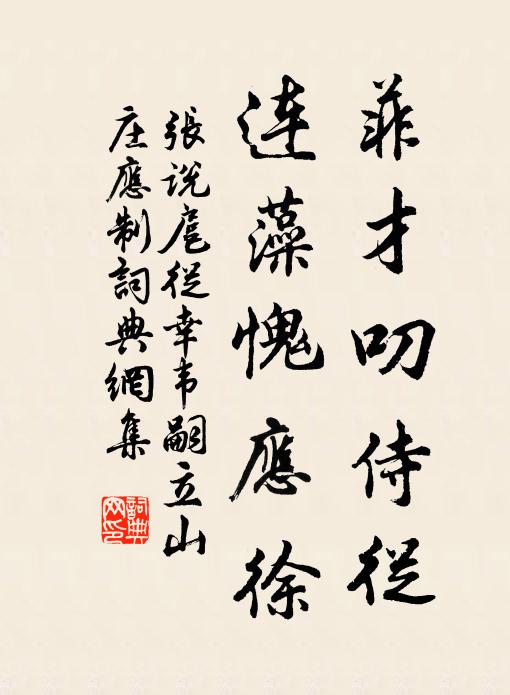 菲才叨侍從
連藻愧應徐
張說扈從幸韦嗣立山
庄應制詞典網集
詞典
网印